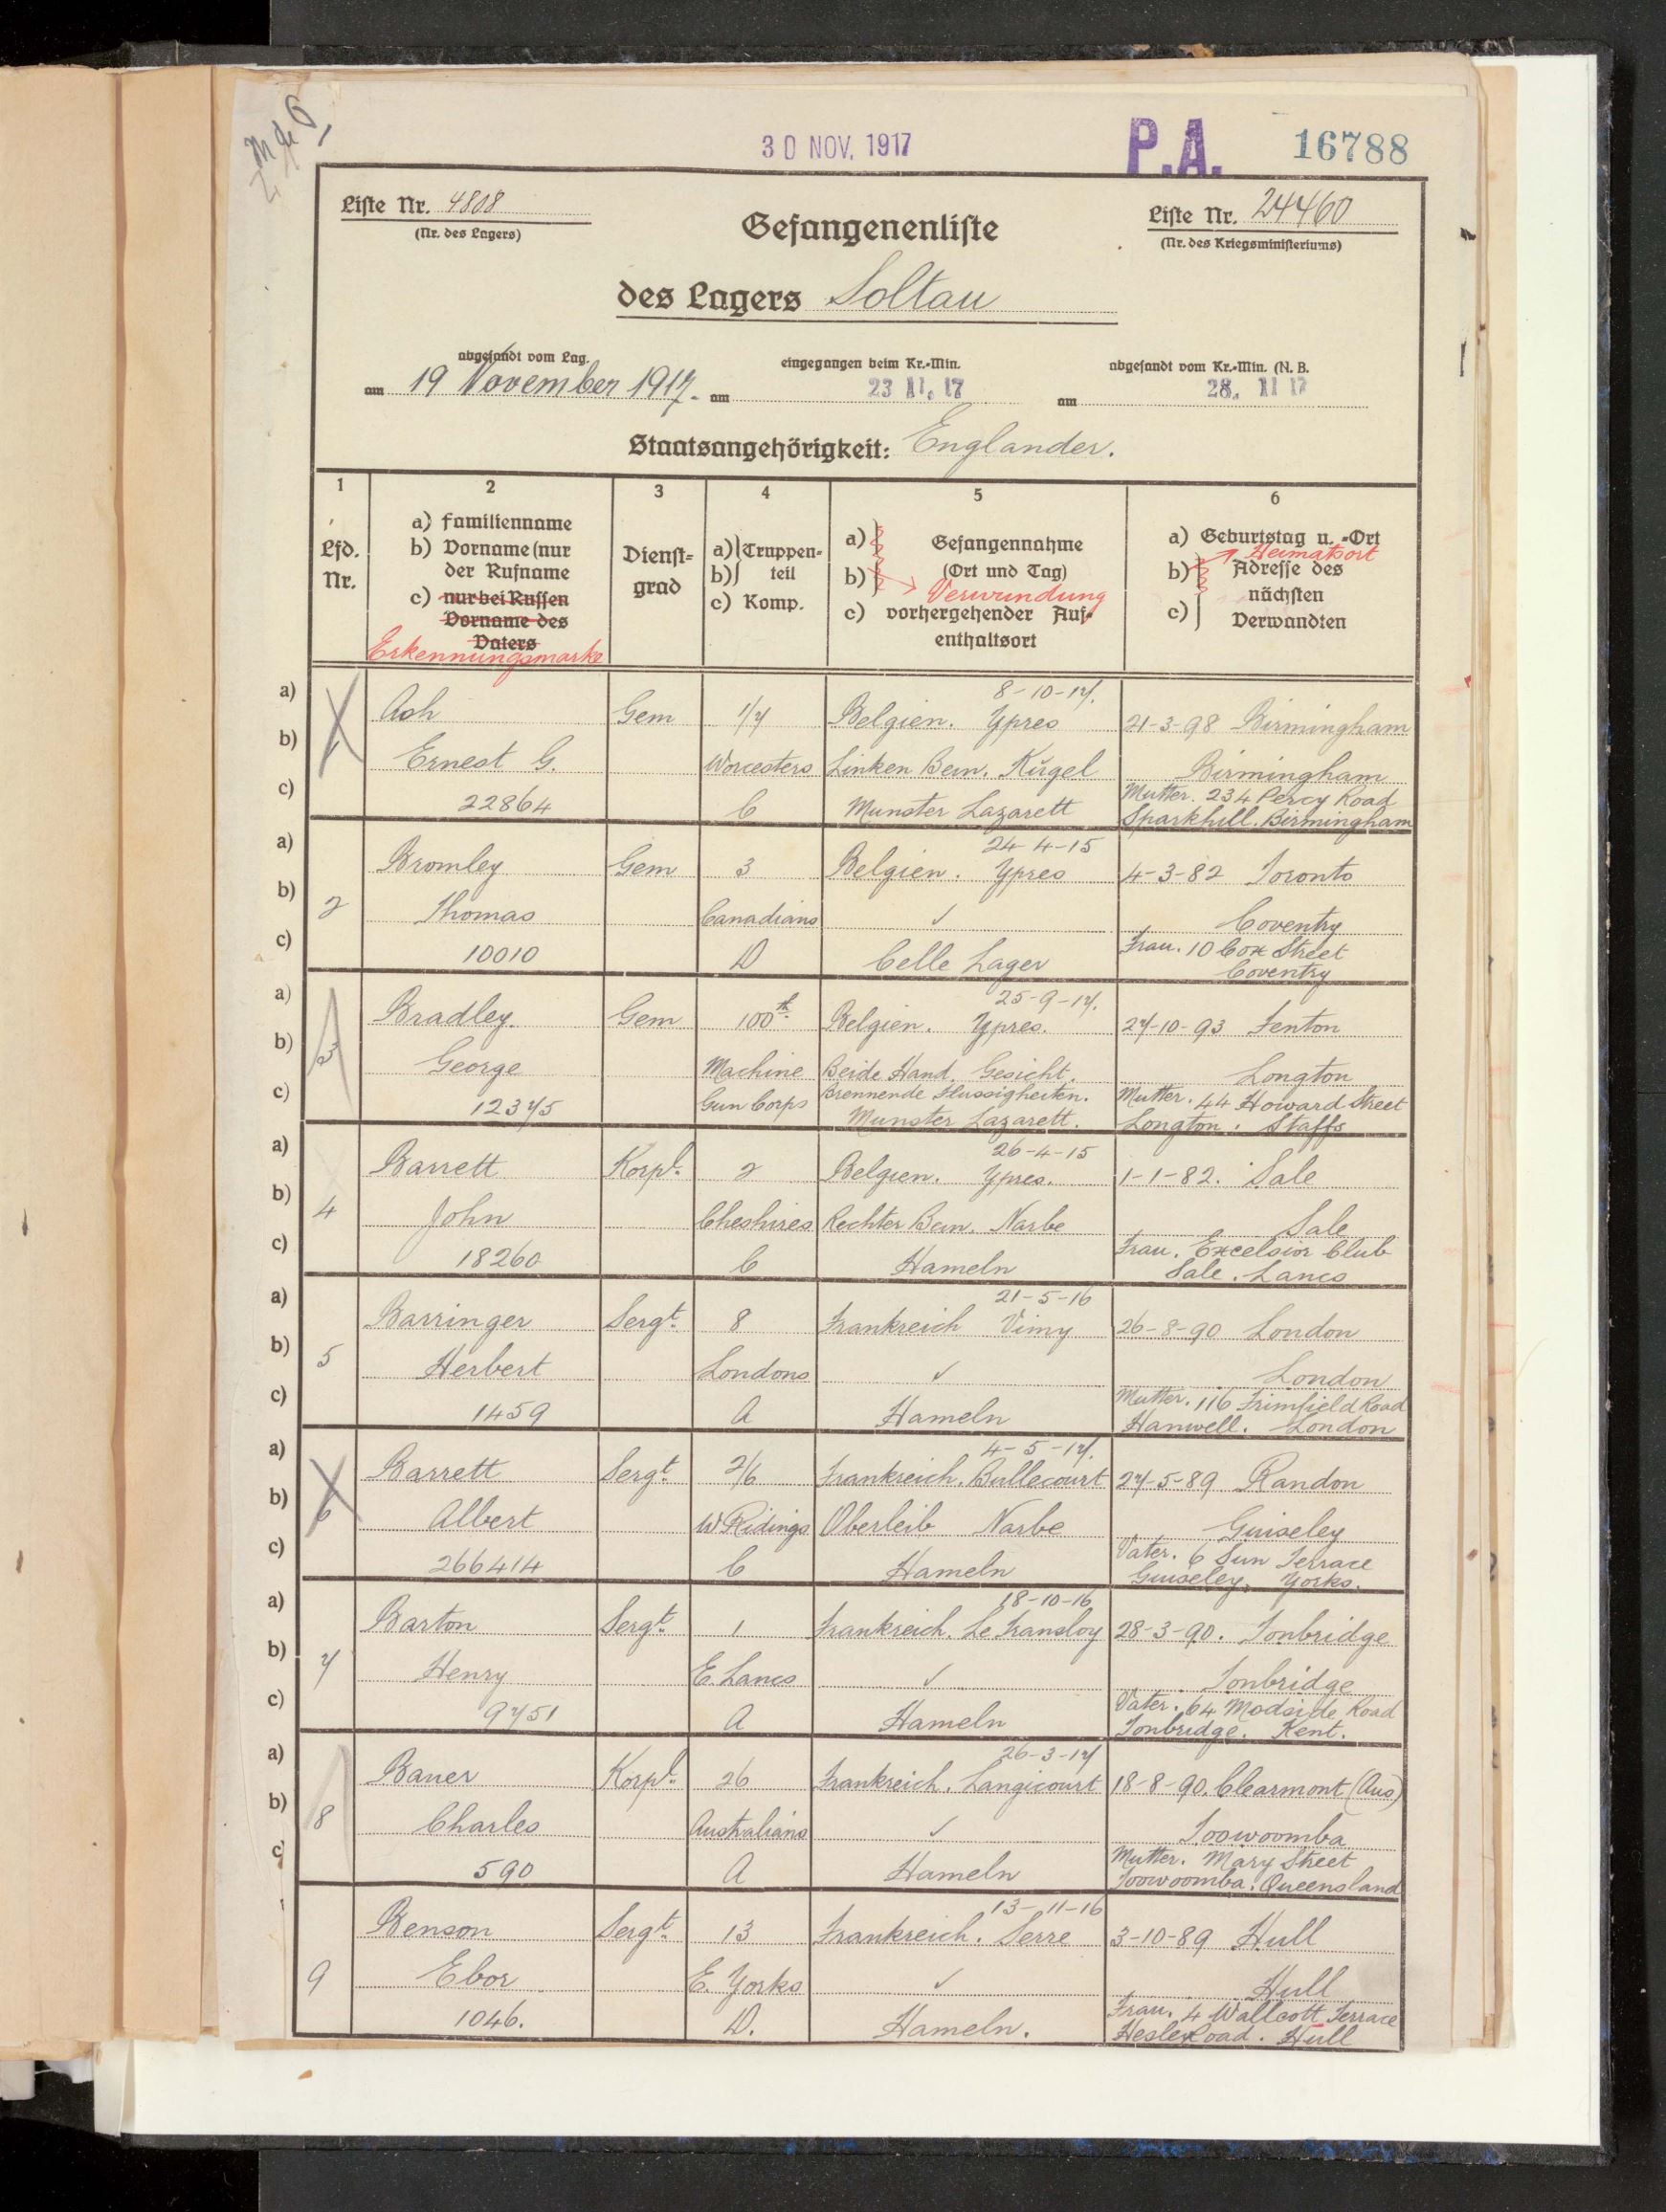 30 NOV. 1917
P.A. 16788
Liste Nr. 4808
(Nr. des Lagers)
Gefangenenliste
Liste Nr. 24460
(Nr. des Kriegsministeriums)
des Lagers Soltau
abgesandt vom Lag.
am 19 November 1917.
eingegangen beim Kr.-Min.
am 23 11. 17
abgesandt vom Kr.-Min. (N. B.
am 28. 11 17
Staatsangehörigkeit: Englander.
1
Lfd.
Nr.
2
a) Familienname
b) Vorname (nur
der Rufname
c) nur bei Russen
Vorname des
Vaters
Erkennungsmarke
3
Dienst-
grad
4
a) Truppen-
b) teil
c) Komp.
5
a) Gefangennahme
b) (Ort und Tag)
Verwundung
c) vorhergehender Auf-
enthaltsort
6
a) Geburtstag u. -Ort
Heimatsort
b) Adresse des
nächsten
c) Verwandten
a) Ash Gem 1/7 Belgien. Ypres 8-10-17. 21-3-98 Birmingham
b) 1 Ernest G. Worcesters Linken Bein. Kugel Birmingham
c) 22864 C Munster Lazarett Mutter. 234 Percy Road
Sparkhill. Birmingham
a) Bromley Gem 3 Belgien. Ypres 24-4-15 4-3-82 Toronto
b) 2 Thomas Canadians ✓ Coventry
c) 10010 D Celle Lager Frau. 10 Cox Street
Coventry
a) Bradley. Gem 100th Belgien. Ypres. 25-9-17. 27-10-93 Fenton
b) 3 George Machine Beide Hand. Gesicht. Longton
c) 12375 Gun Corps Brennende Flussigheiten. Mutter. 44 Howard Street
Munster Lazarett. Longton. Staffs
a) Barrett Korpl. 2 Belgien. Ypres. 26-4-15 1-1-82. Sale
b) 4 John Cheshires Rechter Bein. Narbe Sale
c) 18260 C Hameln Frau. Excelsior Club
Sale. Lancs
a) Barringer Sergt. 8 Frankreich Vimy 21-5-16 26-8-90 London
b) 5 Herbert Londons ✓ London
c) 1459 A Hameln Mutter. 116 Road
Hanwell. London
a) Barrett Sergt. 2/6 Frankreich. Bullecourt 4-5-17. 27-5-89 Randon
b) 6 Albert W Ridings Oberleib Narbe Guiseley
c) 266414 C Hameln Vater. 6 Sun Terrace
Guiseley, Yorks.
a) Barton Sergt. 1 Frankreich. Le Transloy 18-10-16 28-3-90. Tonbridge
b) 7 Henry E. Lancs ✓ Tonbridge
c) 9751 A Hameln Vater. 64 Road
Tonbridge. Kent.
a) Bauer Korpl. 26 Frankreich. Langicourt 26-3-17 18-8-90. Clearmont (Aus)
b) 8 Charles Australians ✓ Toowoomba
c) 590 A Hameln Mutter. Mary Street
Toowoomba. Queensland
Benson Sergt. 13 Frankreich. Serre 13-11-16 3-10-89 Hull
9 Ebor E. Yorks ✓ Hull
1046. D. Hameln. Frau. 4 Wallcott Terrace
Hesle Road. Hull